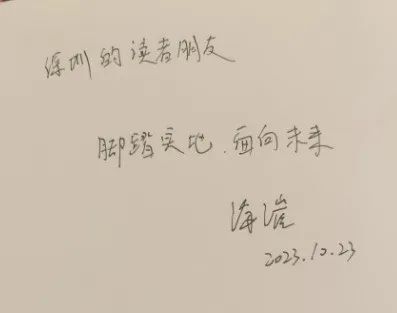 深圳的读者朋友
脚踏实地、面向未来
海崖
2023.10.23